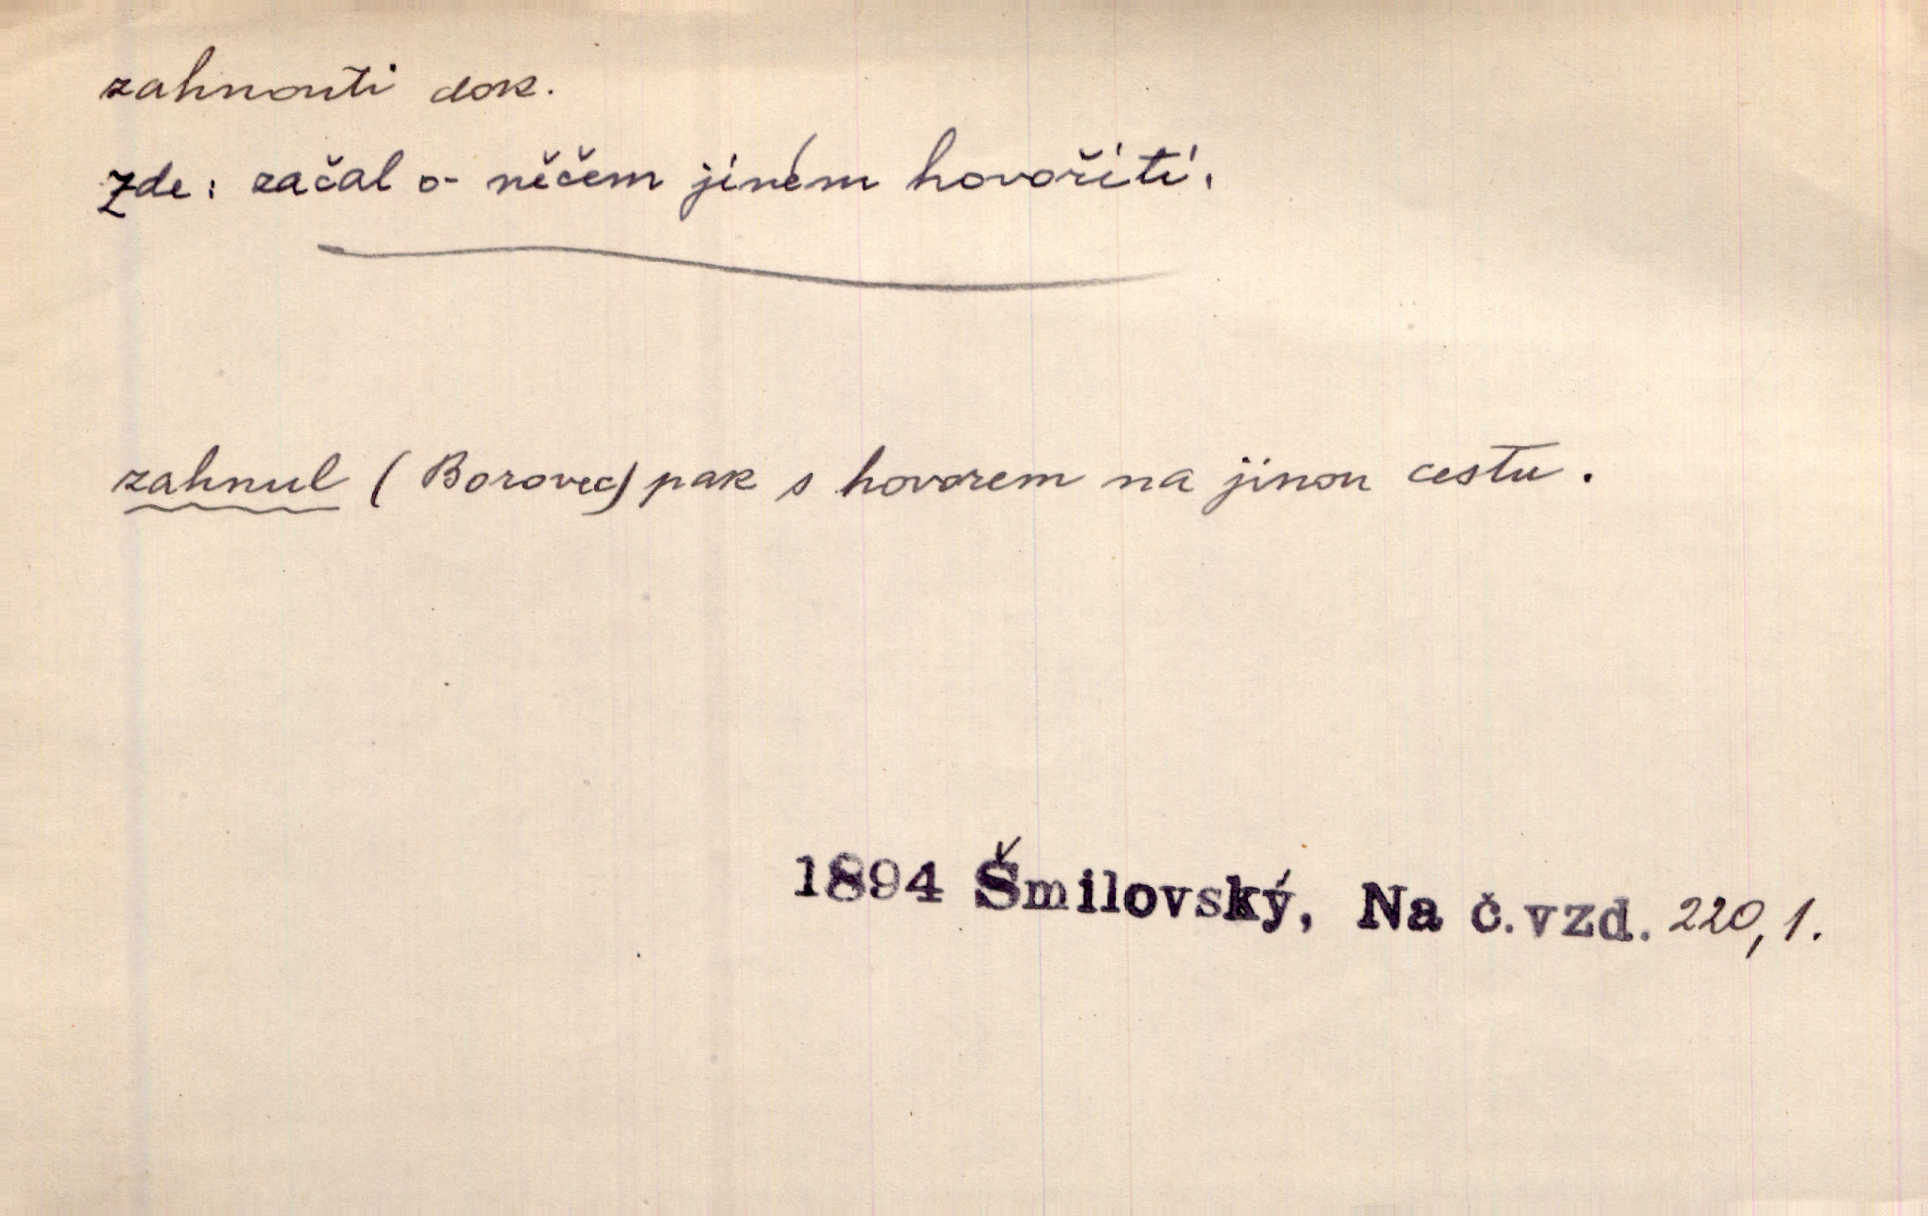 zahnouti dok.
Zde: začal o něčem jiném hovořiti.
zahnul (Borovec) pak s hovorem na jinou cestu.
1894 Šmilovský, Na č.vzd. 220,1.